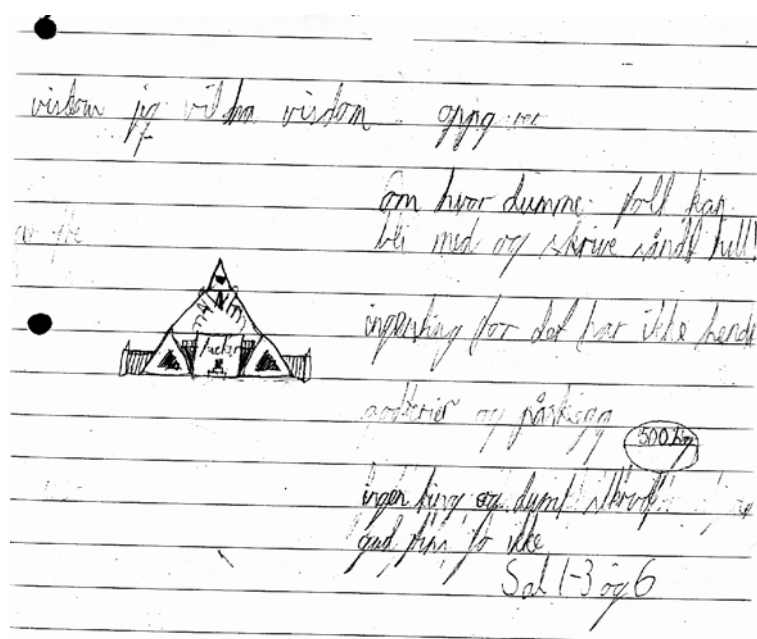 visdom jeg vil ha visdom oppg
Om hvor dumme folk kan
bli med og skrive sånt tull!
ingenting for det har ikke hendt
godterier og påskegg
500 kg
ingen ting og dumt
gud fins jo ikke
Sal 1-3 og 6